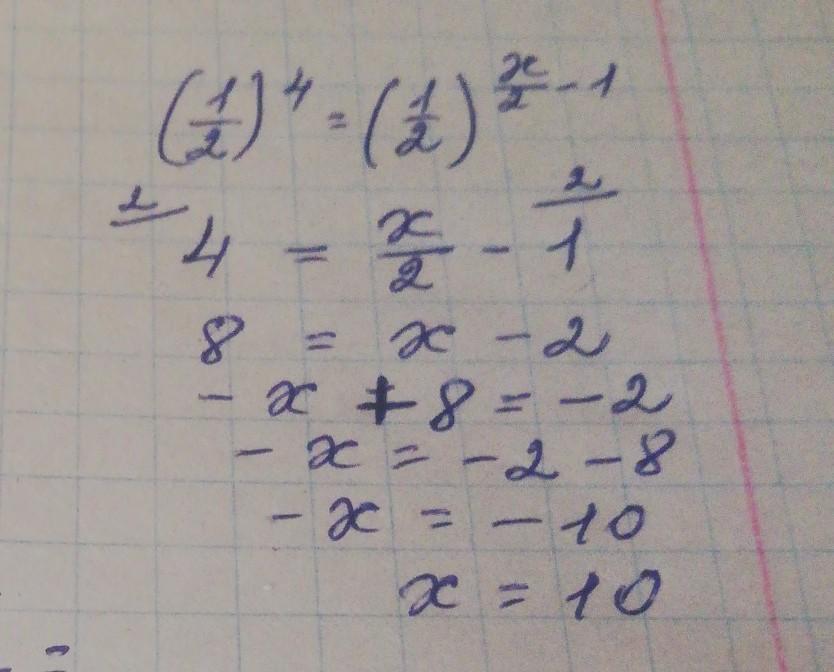 (1/2)^4 = (1/2)^(x/2 - 1)
2/ 4 = x/2 - 2/ 1
8 = x - 2
- x + 8 = - 2
- x = - 2 - 8
- x = - 10
x = 10